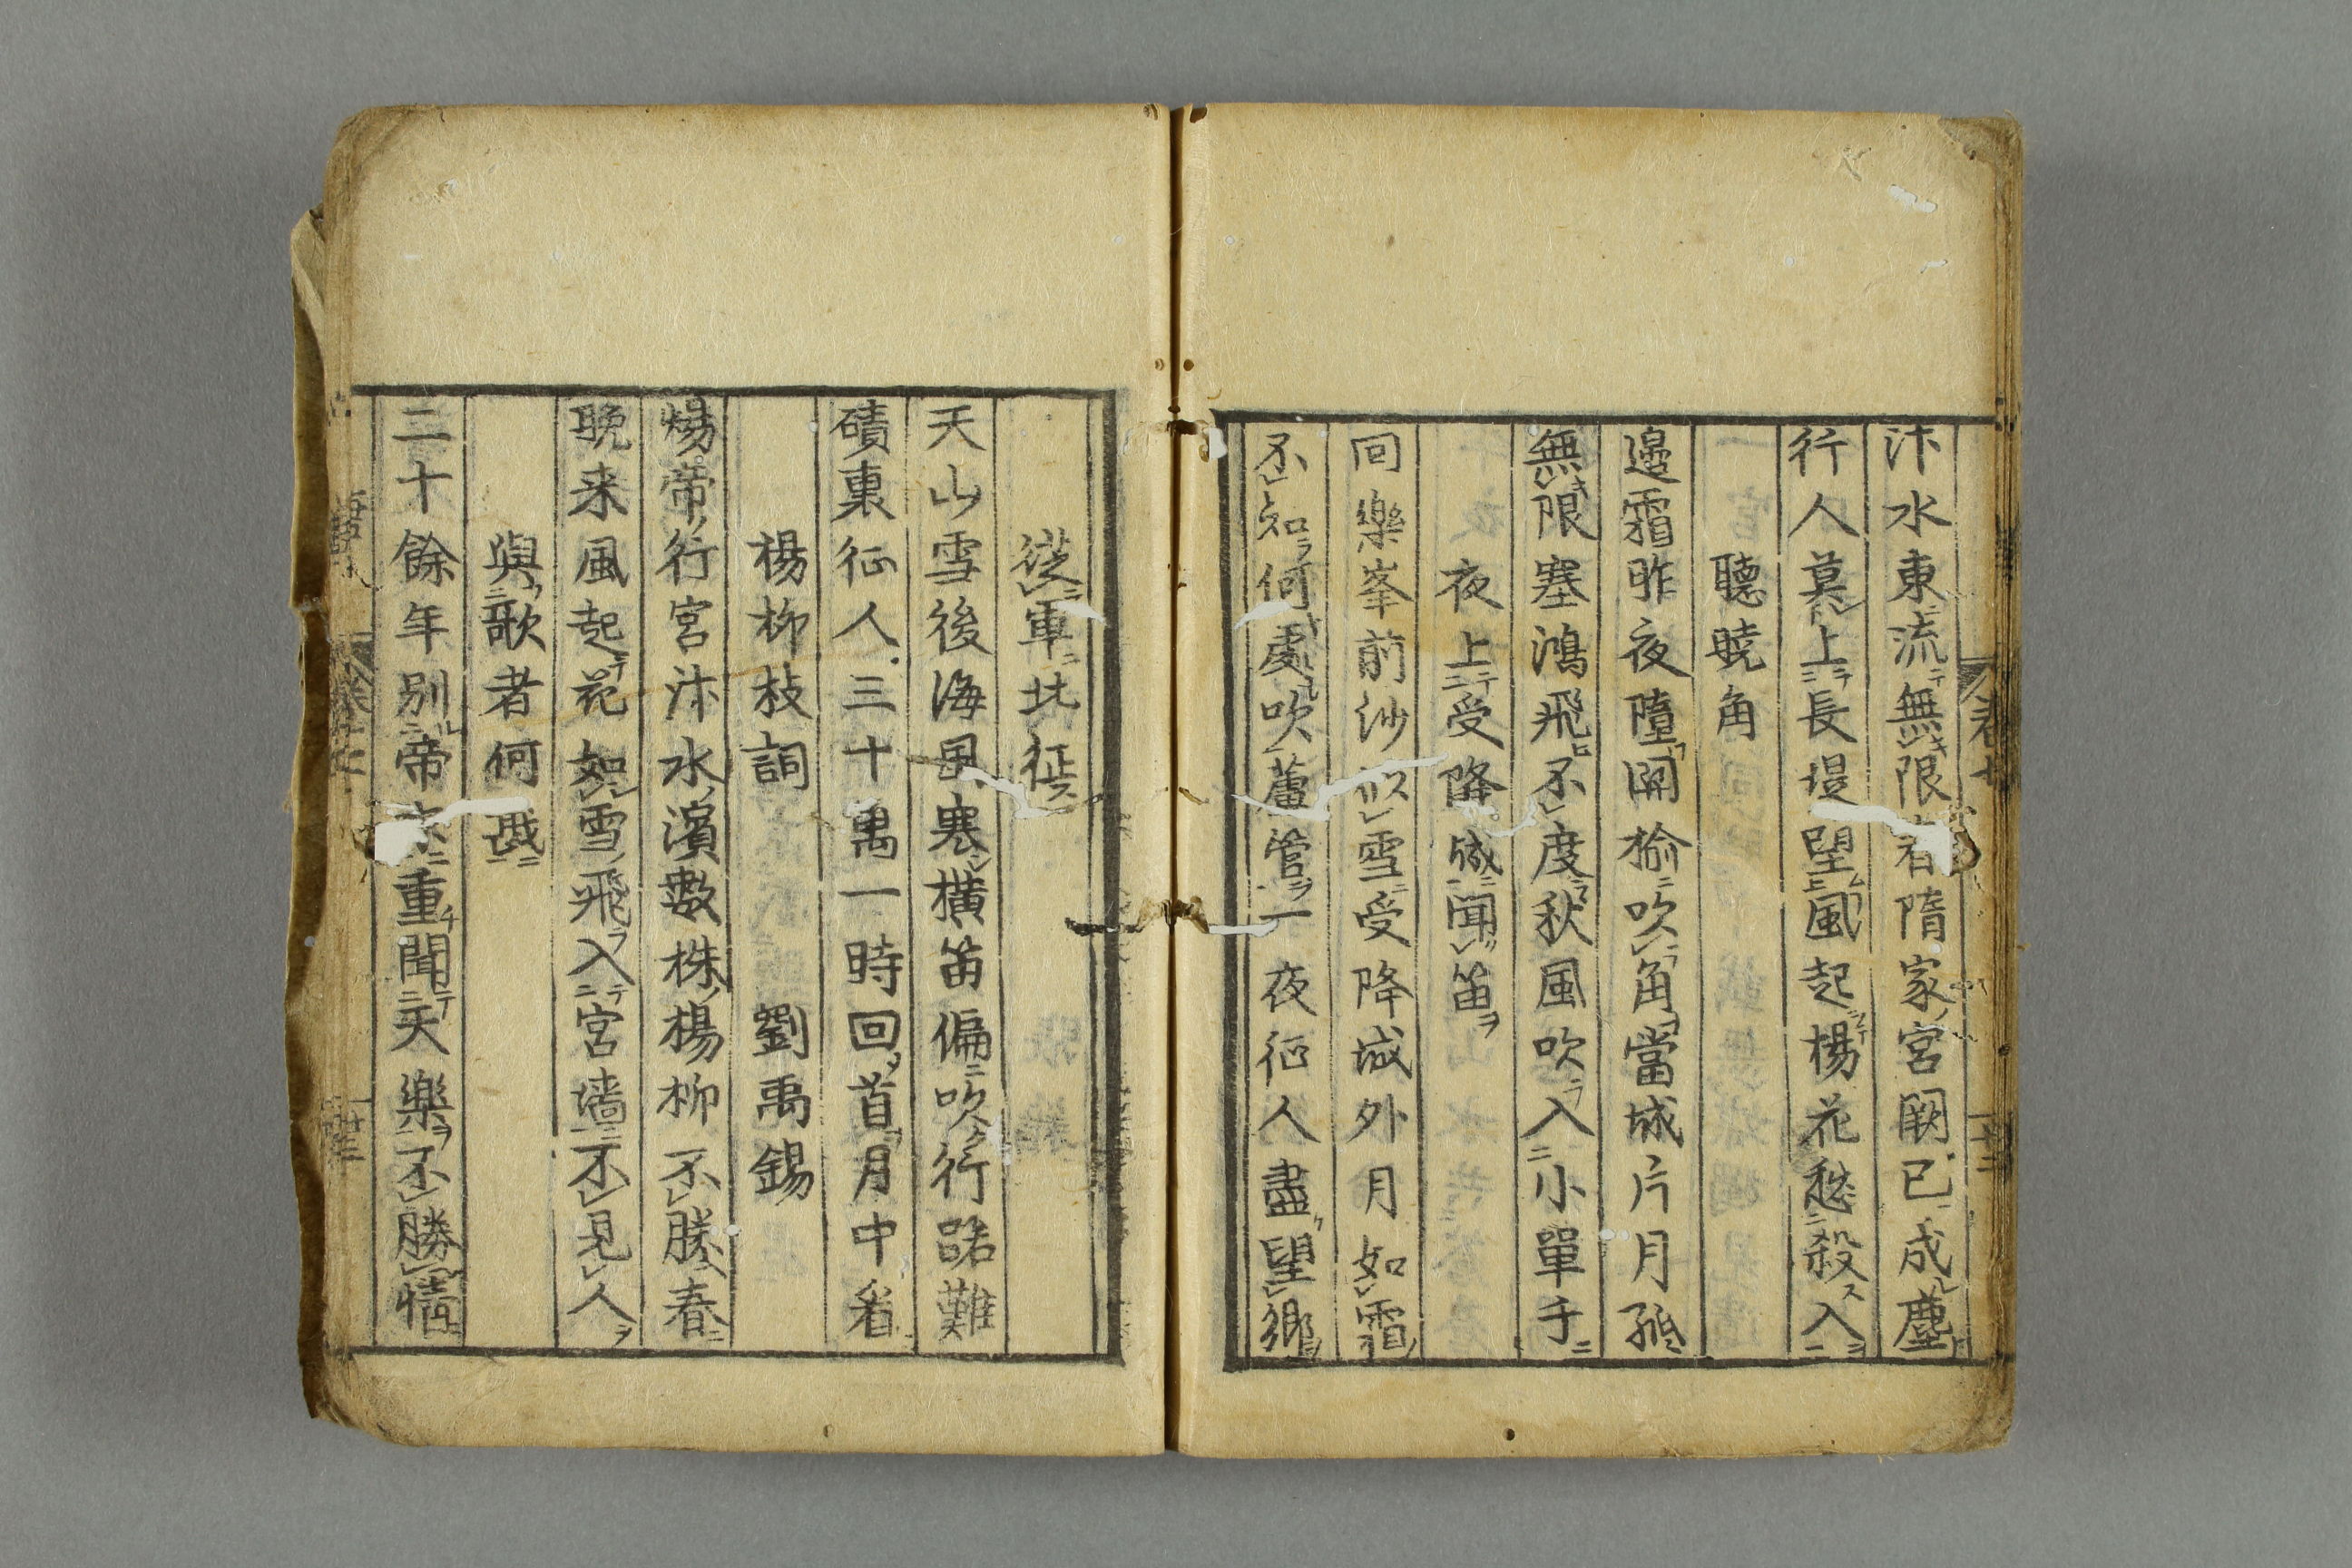 汴水東流無限春隋家宮闕已成塵
行人莫上長堤望風起楊花愁殺入
聽曉角
邉霜昨夜墮關榆吹角當城片月孤
無限塞鴻飛不度秋風吹入小單于
夜上受降城聞笛
回樂峯前沙似雪受降城外月如霜
不知何處吹蘆管一夜征人盡望鄉
從軍北征
天山雪後海風寒橫笛偏吹行路難
磧裏征人三十萬一時回首月中看
楊柳枝詞 劉禹錫
煬帝行宮汴水濱數株楊柳不勝春
晚来風起花如雪飛入宮墻不見人
與歌者何戡
二十餘年別帝京重聞天樂不勝情